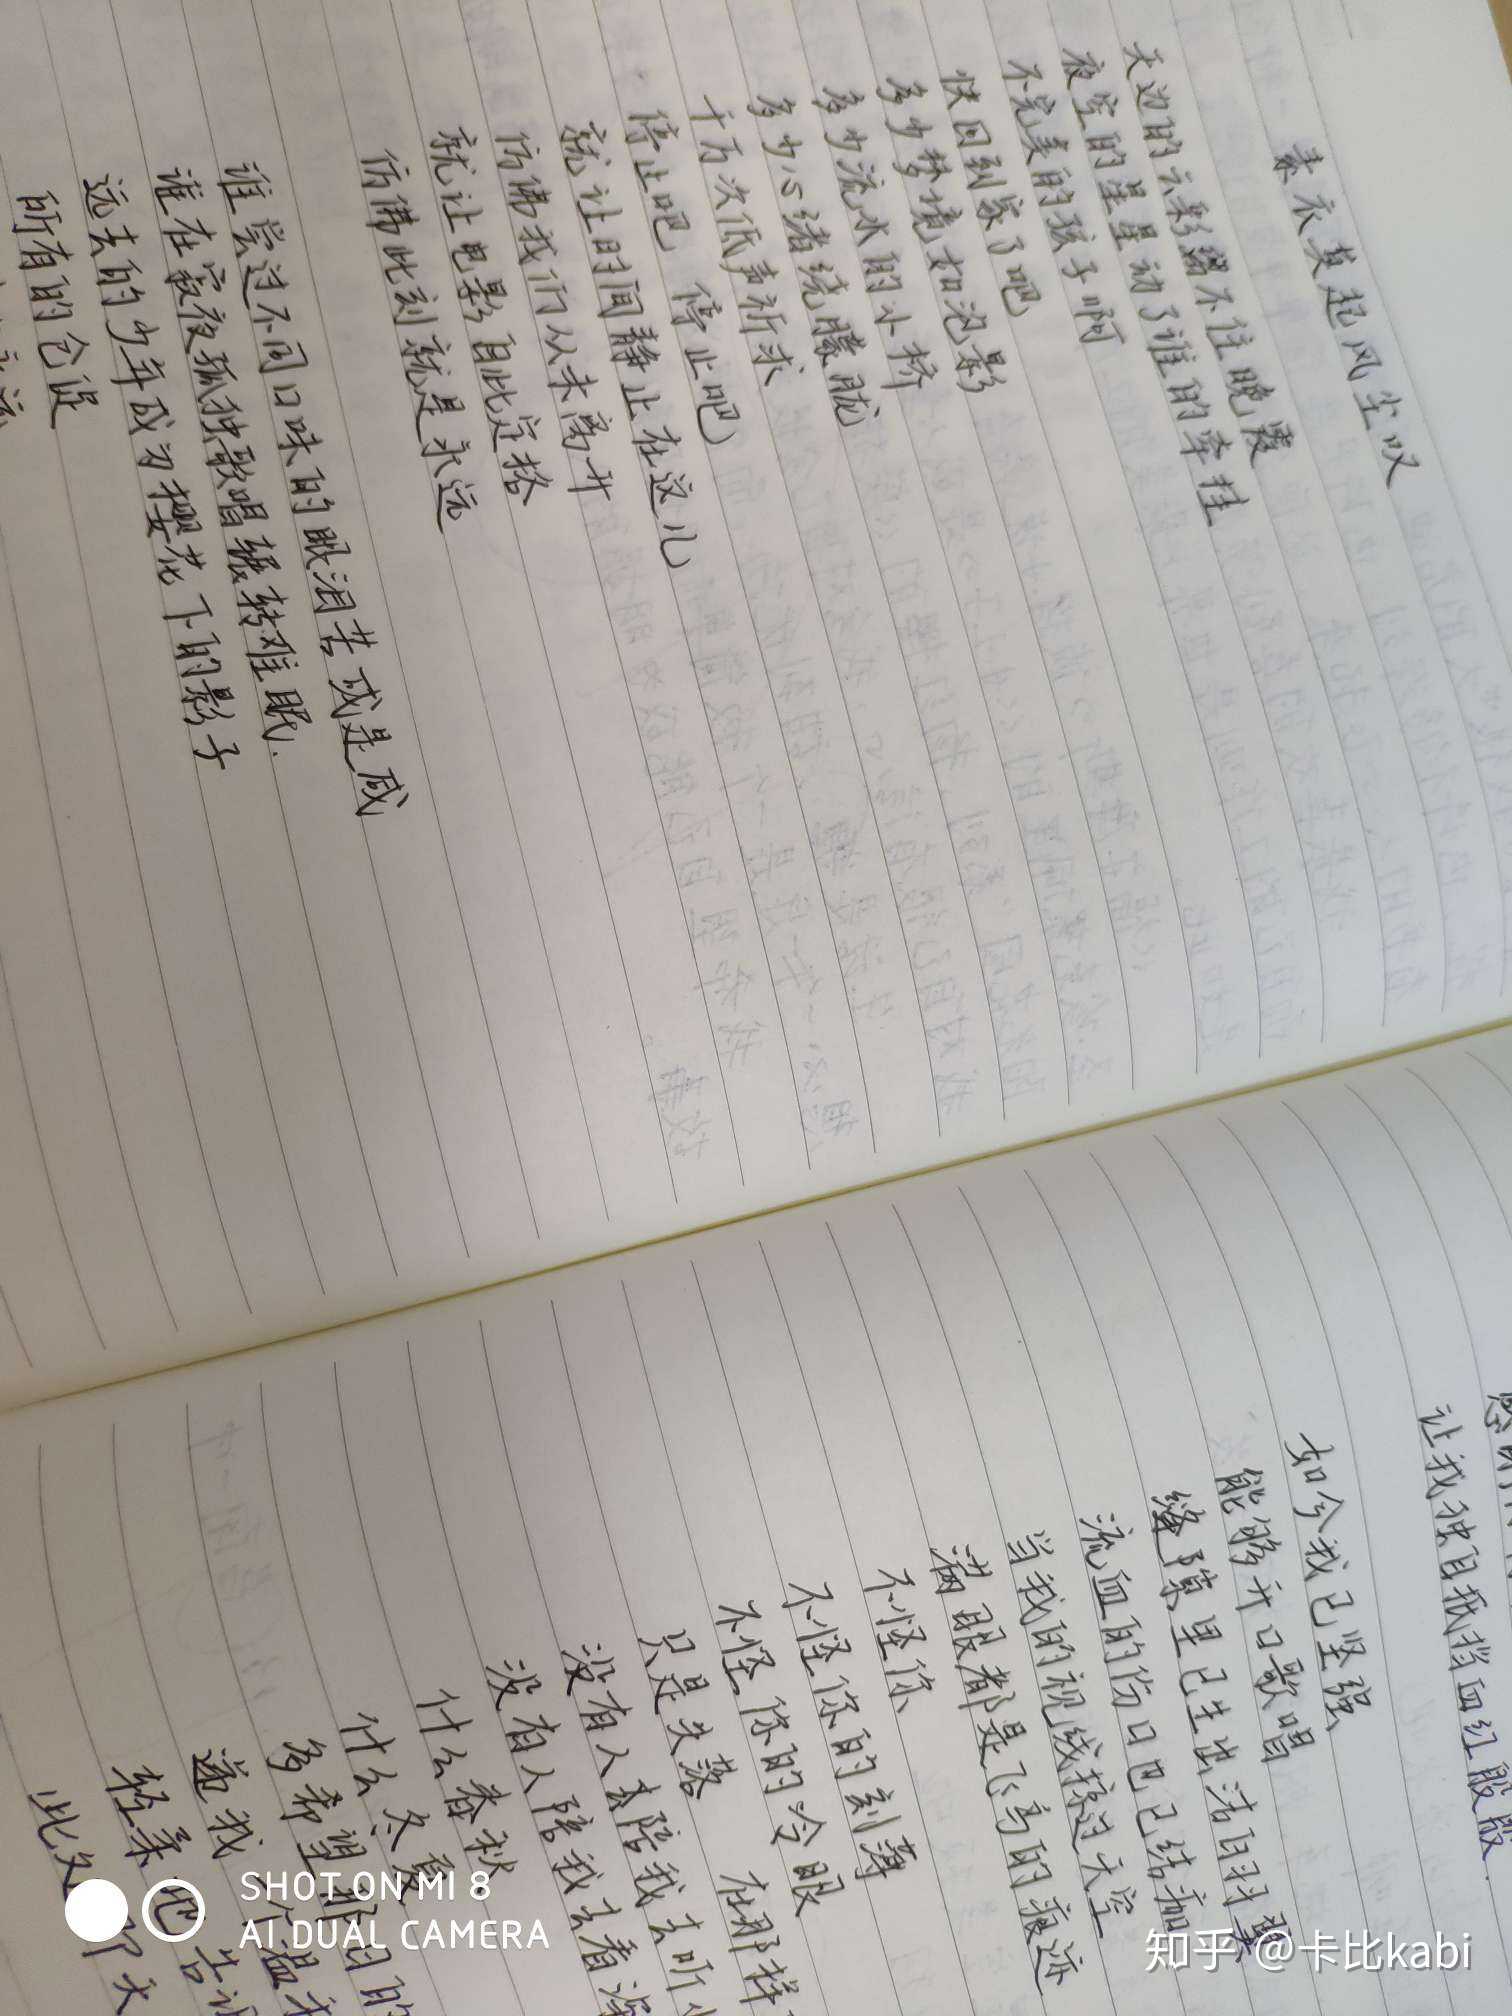 素衣莫起风尘叹
天边的云彩绣不住晚霞
夜空的星星动了谁的牵挂
不完美的孩子啊
快回到家了吧
多少梦境如泡影
多少流水的小桥
多少心绪绕朦胧
千万次低声祈求
停止吧 停止吧
就让时间静止在这儿
仿佛我们从未离开
就让电影自此定格
仿佛此刻就是永远
谁尝过不同口味的眼泪苦或是咸
谁在寂夜孤独歌唱辗转难眠.
远去的少年成为樱花下的影子
所有的仓促
让我独自抵挡血红殷殷.
如今我已坚强
能够开口歌唱
缝隙里已生出洁白羽翼
流血的伤口也已结痂
当我的视线掠过天空
满眼都是飞鸟的痕迹
不怪你
不怪你的刻薄
不怪你的冷眼
只是失落 在那样
没有人去陪我去听
没有人陪我去看
什么春秋
什么冬夏
多希望那日的
递我一个温
轻柔地告
此处那天
SHOT ON MI 8
AI DUAL CAMERA
知乎 @卡比kabi